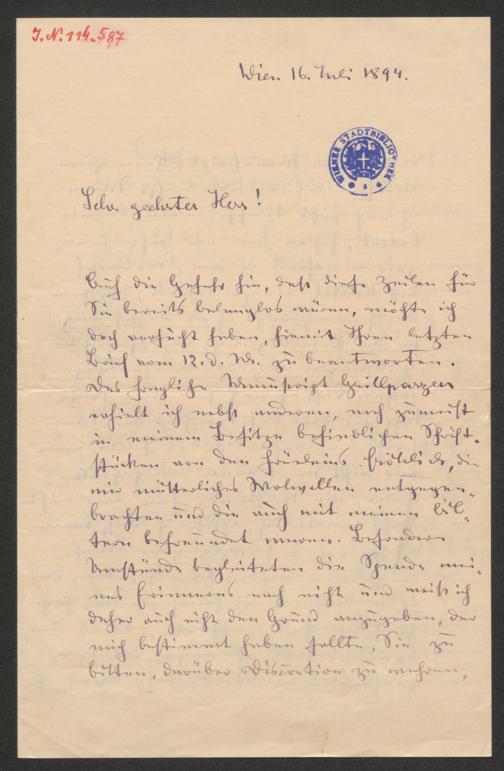 J.N. 114.587
Wien 16. Juli 1894.
WIENER STADTBIBLIOTHEK
Sehr geehrter Herr!
Auf die Gefahr hin, daß diese Zeilen für
Sie bereits belanglos wären, möchte ich
doch versucht haben, hiemit Ihren letzten
Brief vom 12. d. Ms. zu beantworten.
Das fragliche Manuscript Grillparzers
erhielt ich nebst anderen, noch zumeist
in meinem Besitze befindlichen Schrift-
stücken von den Fräuleins Fröhlich, die
mir mütterliches Wolwollen entgegen-
brachten und die auch mit meinen El-
tern befreundet waren. Besondere
Umstände begleiteten die Spende mei-
nes Erinnerns nach nicht und weiß ich
daher auch nicht den Grund anzugeben, der
mich bestimmt haben sollte, Sie zu
bitten, darüber Discretion zu wahren,